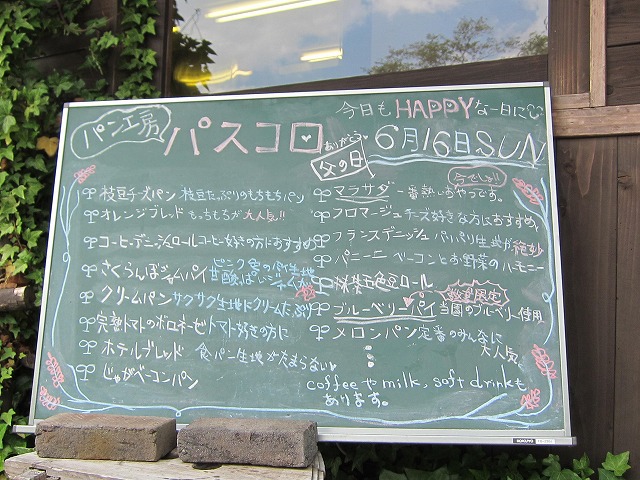 今日もHAPPYな一日に
パン工房
パスコロ
ありがとう
父の日
6月16日SUN
枝豆チーズパン 枝豆たっぷりのもちもちパン
オレンジブレッド もっちもちが大人気!!
コーヒーデニッシュロール コーヒー好きの方におすすめ
さくらんぼジャムパイ ピンク色のパイ生地
甘酸っぱいジャムが
クリームパン サクサク生地にクリームたっぷり
完熟トマトのボロネーゼ トマト好きの方に
ホテルブレッド 食パン生地がたまらない
じゃがベーコンパン
今でしょ!!
マラサダ 一番熱いおやつです。
フロマージュ チーズ好きな方におすすめ
フランスデニッシュ パリパリ生地が絶妙
パニーニ ベーコンとお野菜のハーモニー
抹茶五色豆ロール
数量限定
ブルーベリーパイ 当園のブルーベリー使用
メロンパン 定番のみんなに
大人気
coffeeやmilk, soft drinkも
あります。
KOKUYO